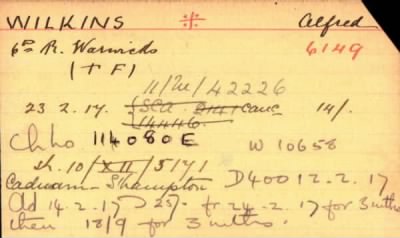 WILKINS ※ Alfred
6th R. Warwicks 6149
(T F)
11/M/42226
23.2.17. (SCA 2141 canc 14/.
14446
Ch. no. 114080E W 10658
Sh. 10/XII/5171
Cadnam - Shampton D400 12.2.17
Old 14.2.17 25/- fr 24.2.17 for 3 mths
then 18/9 for 3 mths.